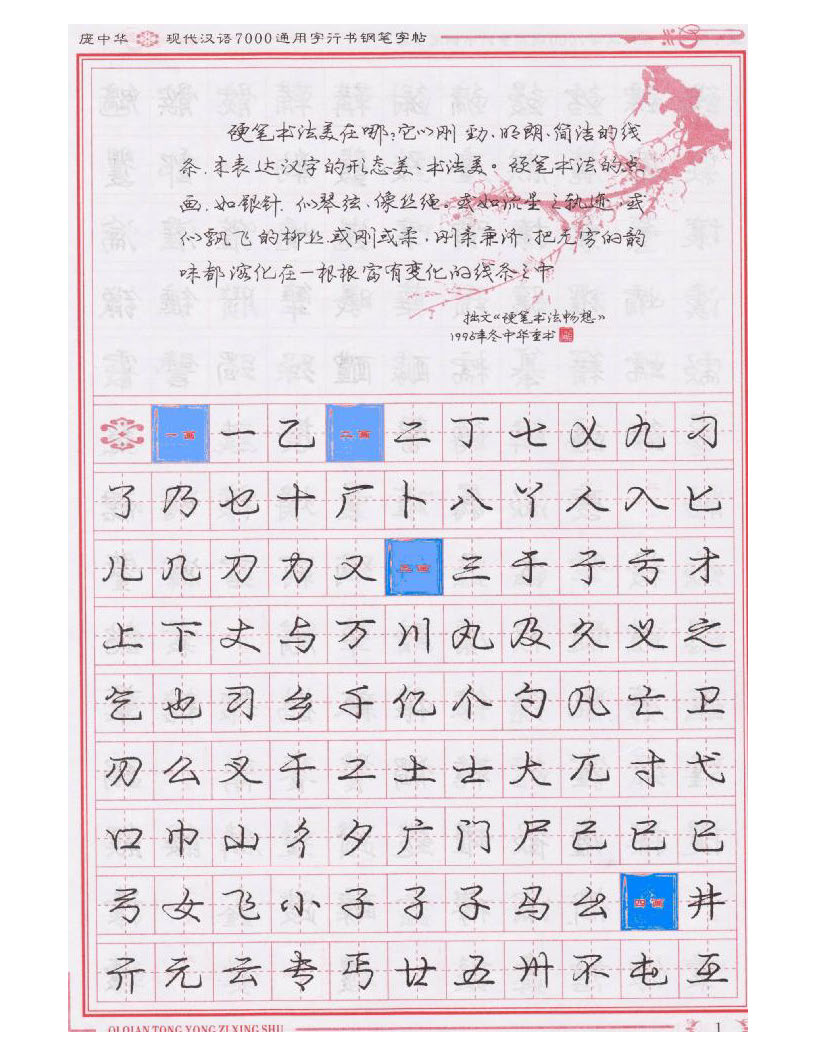 庞中华 现代汉语7000通用字行书钢笔字帖
硬笔书法美在哪?它以刚劲、明朗、简洁的线
条,来表达汉字的形态美、书法美。硬笔书法的点
画,如银针,似琴弦,像丝绳。或如流星之轨迹,或
似飘飞的柳丝或刚或柔,刚柔兼济,把无穷的韵
味都溶化在一根根富有变化的线条之中
拙文《硬笔书法畅想》
1996年冬中华重书
一画 一 乙 二画 二 丁 七 乂 九 刁
了 乃 乜 十 厂 卜 八 丫 人 入 匕
儿 几 刀 力 又 三画 三 于 亍 亏 才
上 下 丈 与 万 川 丸 及 久 义 之
乞 也 习 乡 千 亿 个 勺 凡 亡 卫
刃 么 叉 干 工 土 士 大 兀 寸 弋
口 巾 山 彳 夕 广 门 尸 己 已 巳
弓 女 飞 小 子 孑 孓 马 幺 四画 井
亓 元 云 专 丐 廿 五 卅 不 屯 互
QI QIAN TONG YONG ZI XING SHU
1